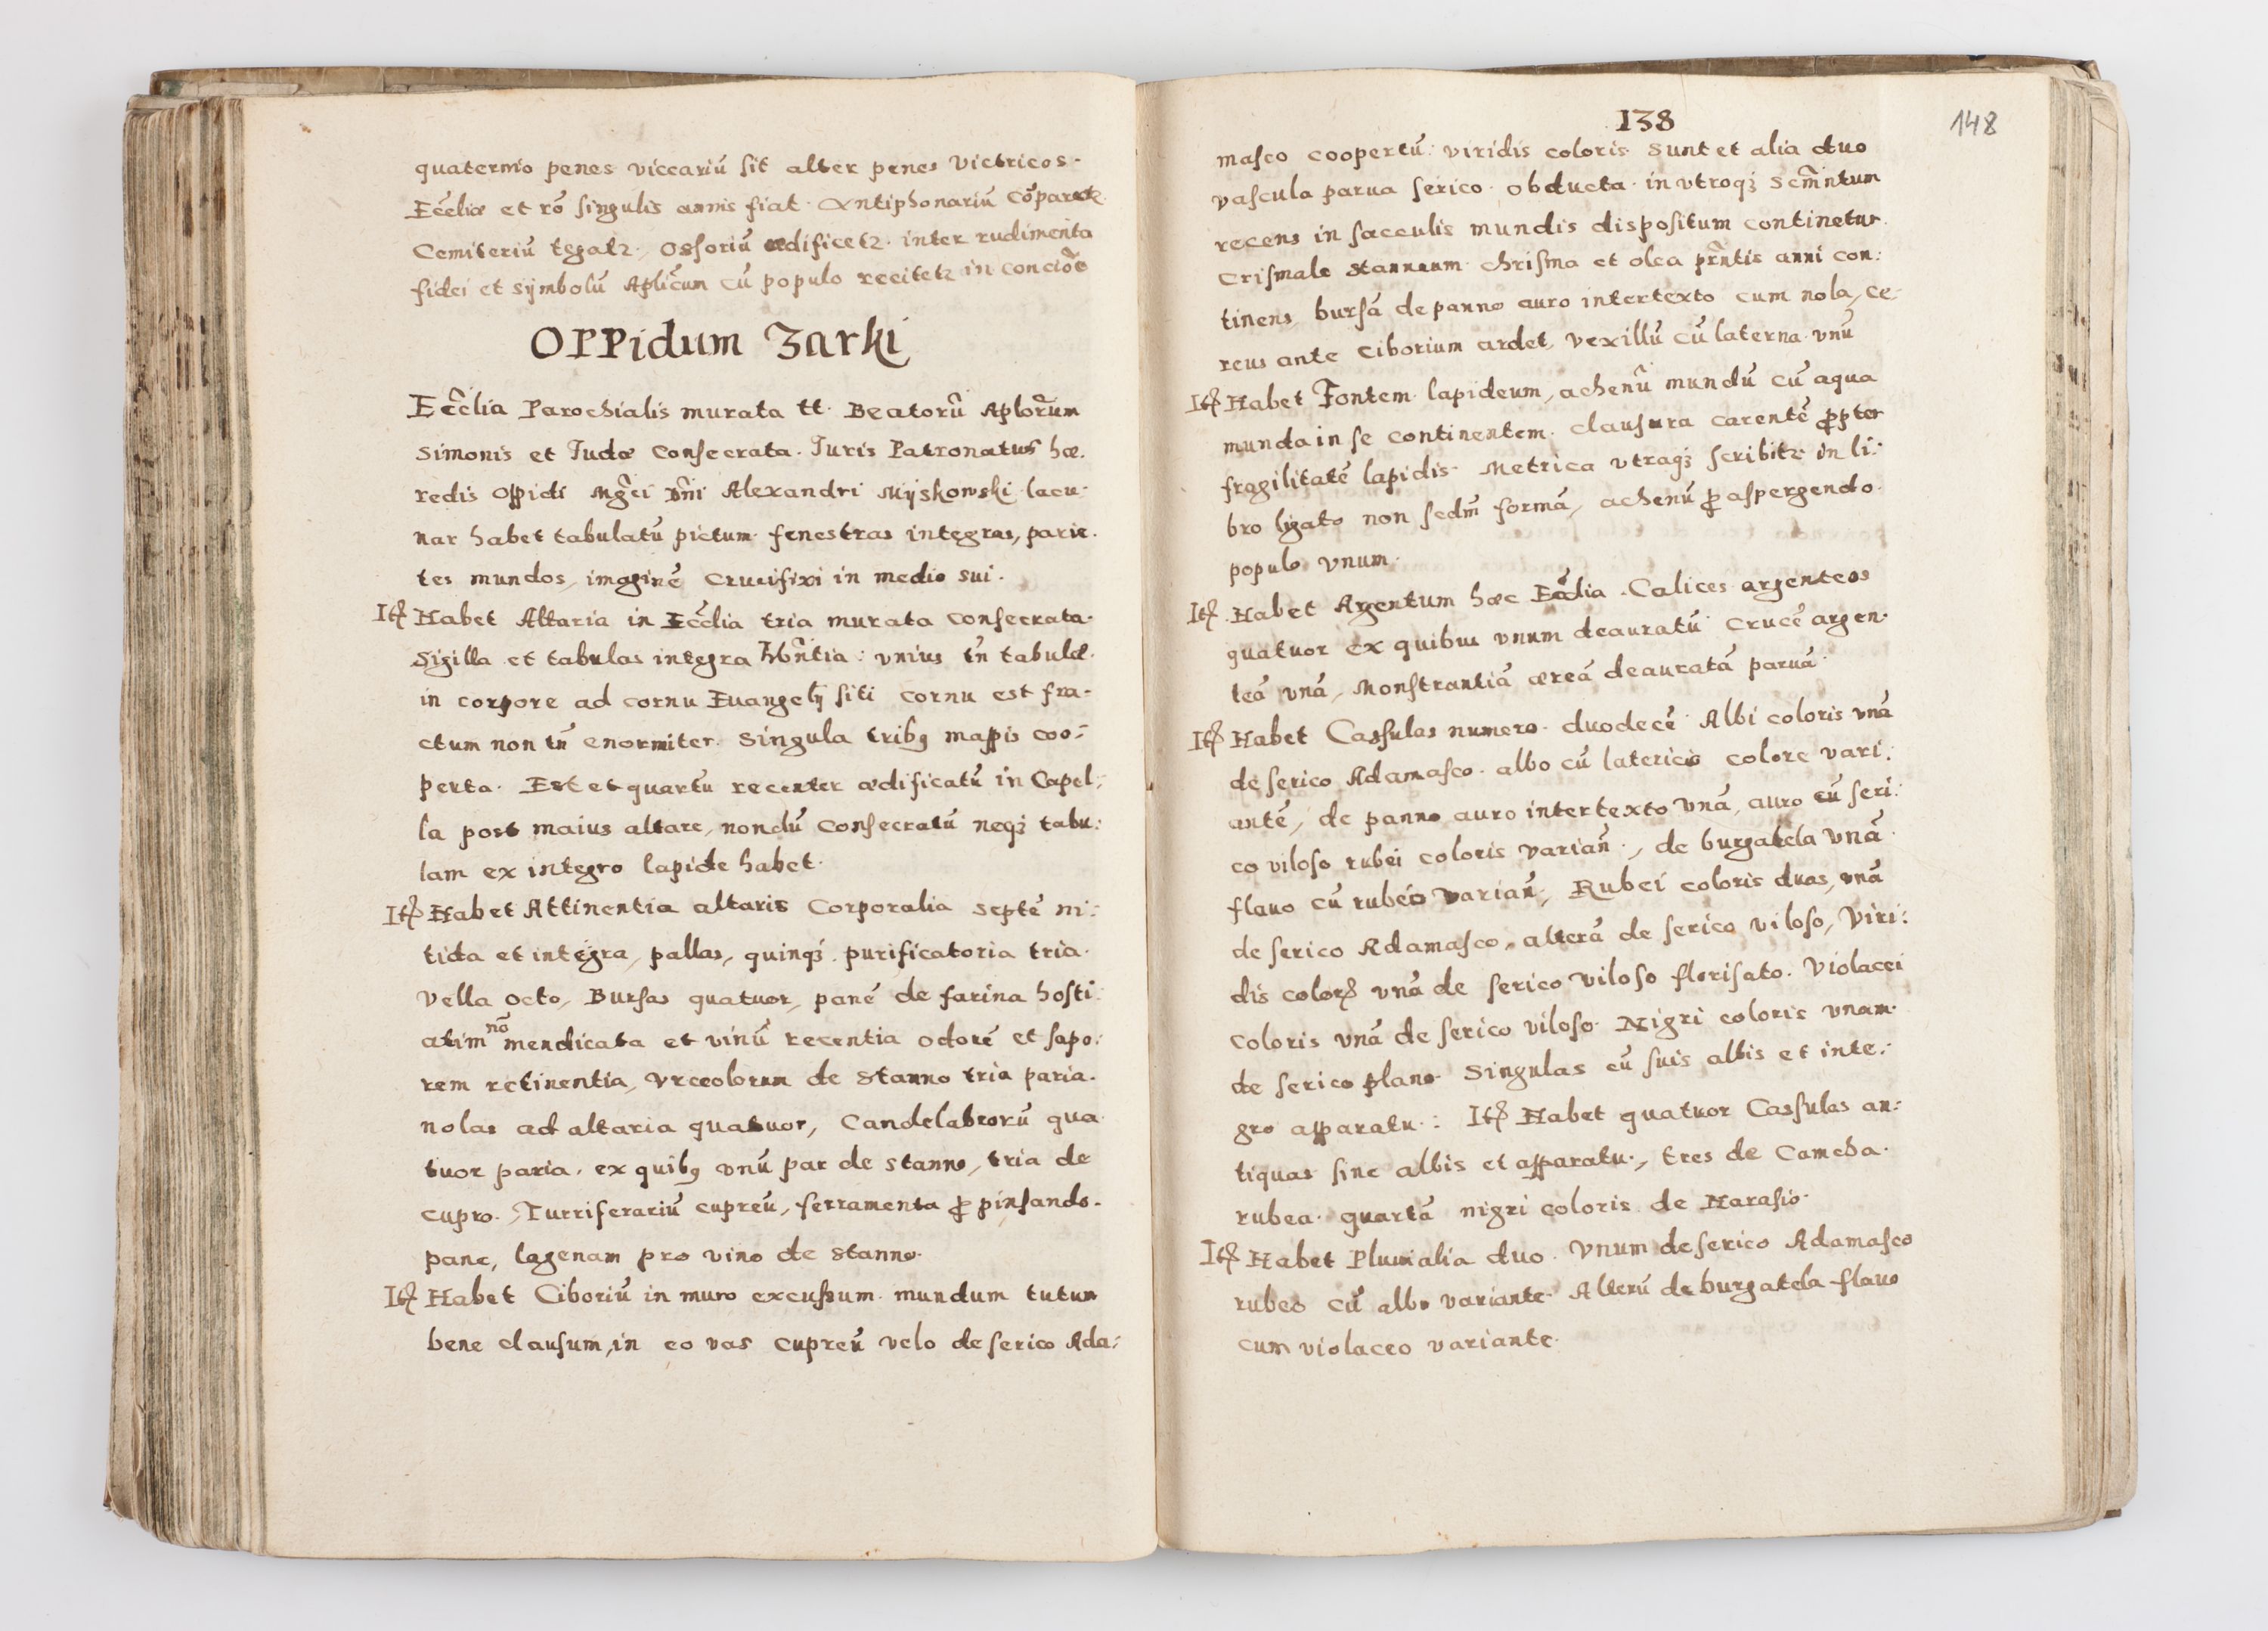 quaternio penes viccariũ sit alter penes Victricos.
Ecc̃liæ et rõ singulis annis fiat. Antiphonariũ Cõparetꝛ.
Cemiteriũ tegatꝛ, Ossoriũ ædificetꝛ. inter rudimenta
fidei et sÿmbolũ Apl̃icum cũ populo recitetꝛ in concio̅e
OPPidum Zarki
Ecc̃lia Parochialis murata tt. Beatorũ Aplor̃um
Simonis et Judæ Consecrata. Juris Patronatus hæ.
redis oppidi Mgc̃i Dñi Alexandri Mÿskowski. lacu.
nar habet tabulatũ pictum. fenestras integras, parie.
tes mundos, imaginẽ Crucifixi in medio sui.
Itꝫ Habet Altaria in Ecc̃lia tria murata consecrata.
Sigilla et tabulas integra hñtia: vnius tñ tabulæ.
in corpore ad cornu Euangelÿ siti cornu est fra-
ctum non tñ enormiter. Singula tribꝰ mappis coo:
perta. Est et quartũ recenter ædificatũ in Capel:
la post maius altare, nondũ Consecratũ neqꝫ tabu:
lam ex integro lapide habet.
Itꝫ Habet Attinentia altaris Corporalia Septẽ ni:
tida et integra, pallas, quinqꝫ. purificatoria tria.
Vella octo, Bursas quatuor, panẽ de farina hosti:
atim nõ mendicata et vinũ recentia odorẽ et sapo:
rem retinentia, Vrceolorum de Stanno tria paria.
nolas ad altaria quatuor, Candelabrorũ qua.
tuor paria. ex quibꝰ vnũ par de stanno, tria de
cupro. Turriferariũ cupreũ, ferramenta ꝓ pinsando.
pane, lagenam pro vino de stanno.
Itꝫ Habet Ciboriũ in muro excussum. mundum tutum
bene clausum, in eo vas cupreũ velo de serico Ada:
138
148
masco coopertũ: viridis coloris Sunt et alia duo
vascula parua serico. obducta. in vtroqꝫ Scrm̃ntum
recens in sacculis mundis dispositum continetur.
Crismale stanneum. chrisma et olea prñtis anni con:
tinens, bursã de panno auro intertexto cum nola, ce:
reus ante Ciborium ardet, vexillũ cũ laterna. vnũ
Itꝫ Habet Fontem. lapideum, achenũ mundũ cũ aqua
munda in se continentem. clausura carentẽ ꝓpter
fragilitatẽ lapidis. Metrica vtraqꝫ scribitꝛ in li:
bro ligato non secdm̃ formã, achenũ ꝓ aspergendo.
populo vnum.
Itꝫ Habet Argentum hæc Ecc̃lia. Calices argenteos
quatuor ex quibus vnum deauratũ Crucẽ argen.
teã vnã, Monstrantiã æreã deauratã paruã.
Itꝫ Habet Cassulas numero. duodecẽ Albi coloris vnã
de serico Adamasco. albo cũ latericio colore vari:
antẽ, de panno auro intertexto vnã, auro cũ seri:
co viloso rubei coloris varian̄., de burgatela vnã
flauo cũ rubeo varian̄, Rubei coloris duas, vnã
de serico Adamasco, alterã de serico viloso, Viri:
dis colorꝫ vnã de serico viloso florisato. Violacei
coloris vnã de serico viloso. Nigri coloris vnam.
de serico plano. Singulas cũ suis albis et inte:
gro apparatu.: Itꝫ Habet quatuor Cassulas an:
tiquas sine albis et apparatu., tres de Camcha.
rubea. quartã nigri coloris de Harasio.
Itꝫ Habet Pluuialia duo. Vnum de serico Adamasco
rubeo cũ albo variante. Alterũ de burgatela flauo
cum violaceo variante.